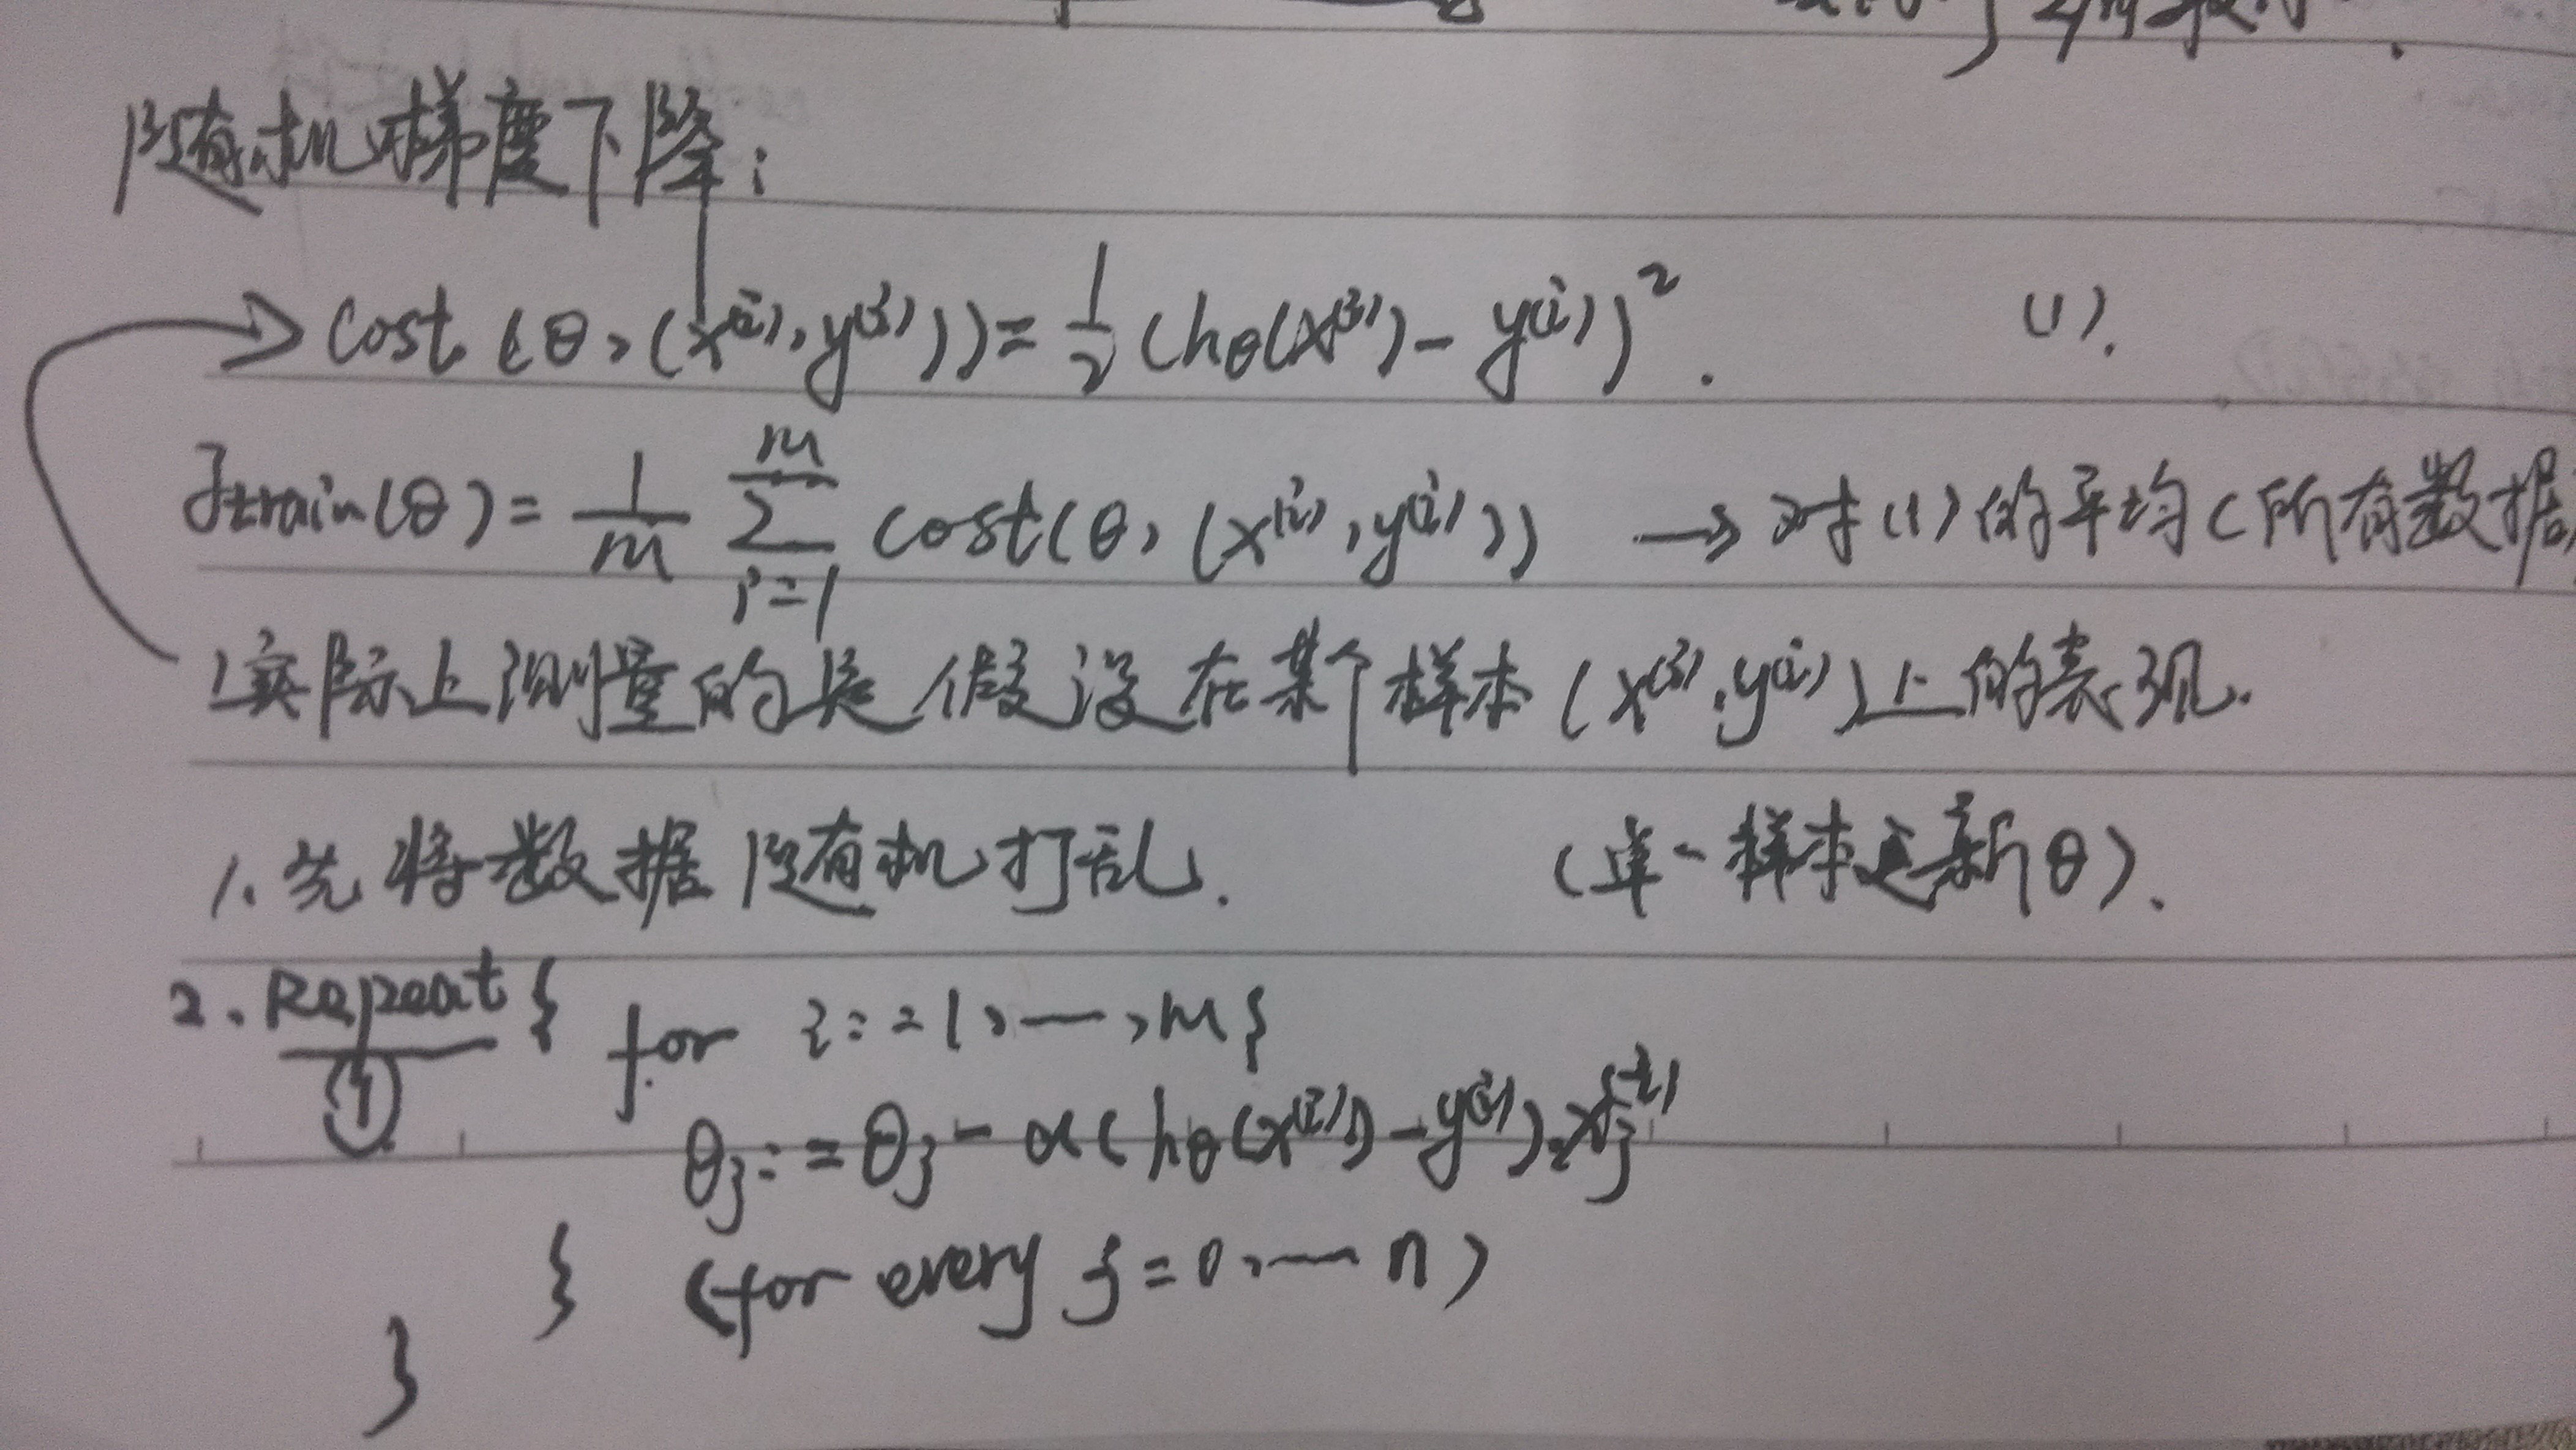 随机梯度下降:
cost(θ,(x⁽ⁱ⁾,y⁽ⁱ⁾))=1/2(hθ(x⁽ⁱ⁾)-y⁽ⁱ⁾)². (1).
Jtrain(θ)=1/m Σᵢ₌₁ᵐ cost(θ,(x⁽ⁱ⁾,y⁽ⁱ⁾)) → 对(1)的平均(所有数据
实际上测量的是假设在某个样本(x⁽ⁱ⁾,y⁽ⁱ⁾)上的表现.
1.先将数据随机打乱. (单一样本更新θ).
2.Repeat{ for i:=1,…,m{
①
θj:=θj-α(hθ(x⁽ⁱ⁾)-y⁽ⁱ⁾).xj⁽ⁱ⁾
} (for every j=0,…n)
}